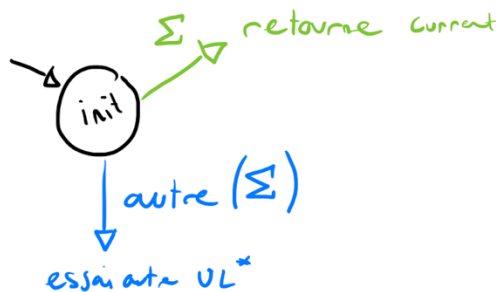 Σ retourne current
init
autre (Σ)
essai autre UL*